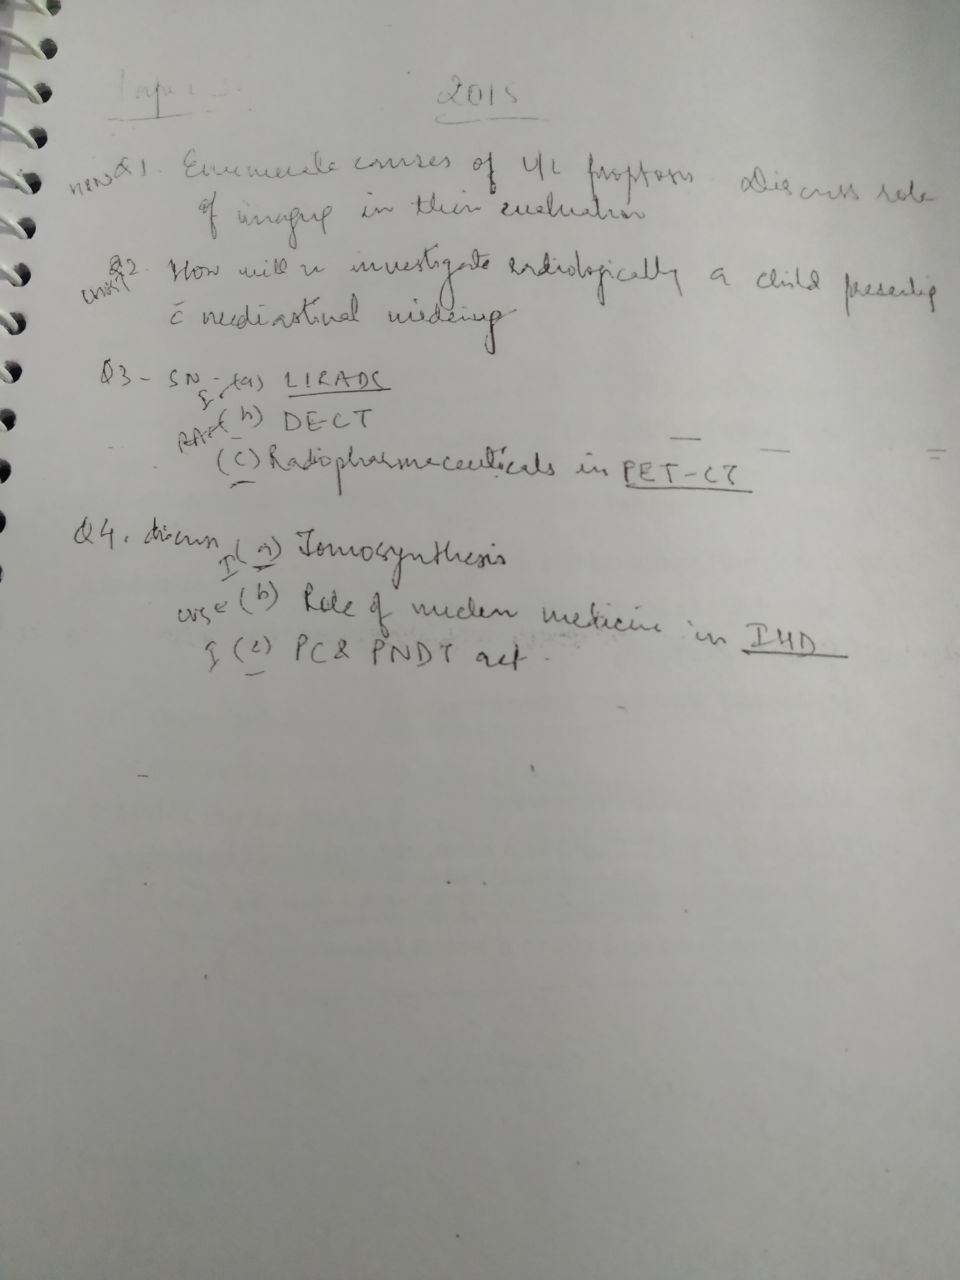 Paper 2015
Q1. Enumerate causes of U/L proptosis. Discuss role
of imaging in their evaluation
Q2. How will u investigate radiologically a child presenting
chest
c̄ mediastinal widening
Q3 - SN - (a) LIRADS
(b) DECT
(c) Radiopharmaceuticals in PET-CT
Q4. discuss (a) Tomosynthesis
(b) Role of nuclear medicine in IHD
(c) PC & PNDT act.